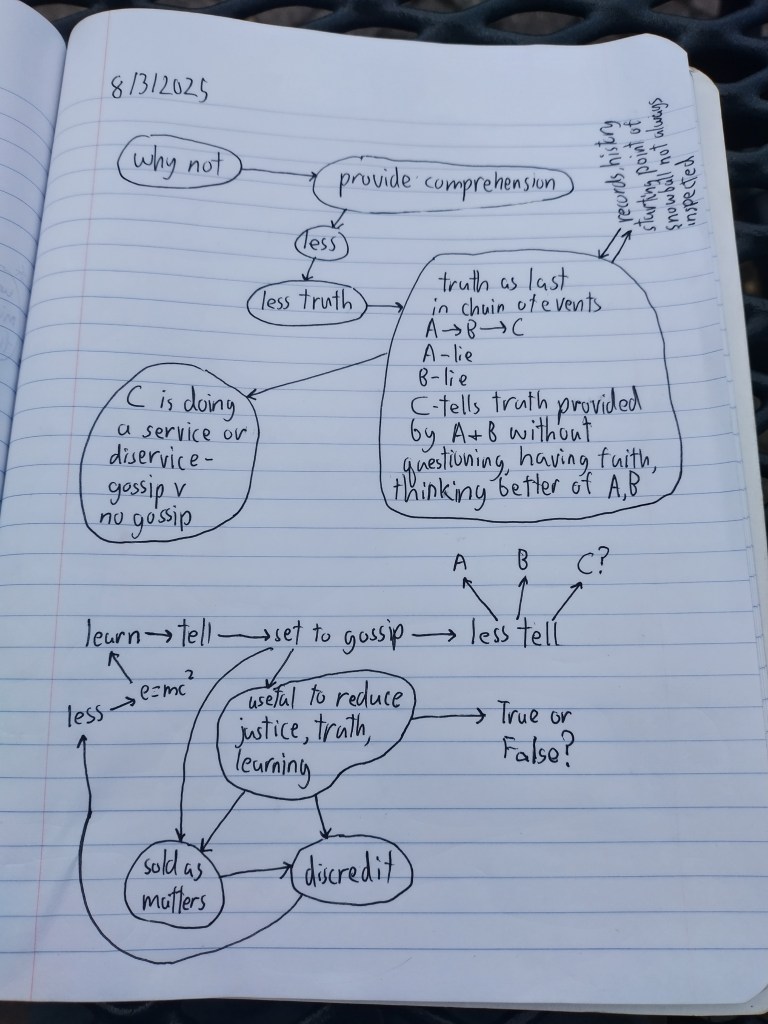 8/3/2025
why not
provide comprehension
less
less truth
records history
starting point of
snowball not always
inspected
truth as last
in chain of events
A→B→C
A-lie
B-lie
C-tells truth provided
by A+B without
questioning, having faith,
thinking better of A,B
C is doing
a service or
diservice-
gossip v
no gossip
A B C?
learn→tell→set to gossip→less tell
e=mc²
less→
useful to reduce
justice, truth,
learning
True or
False?
sold as
matters
discredit